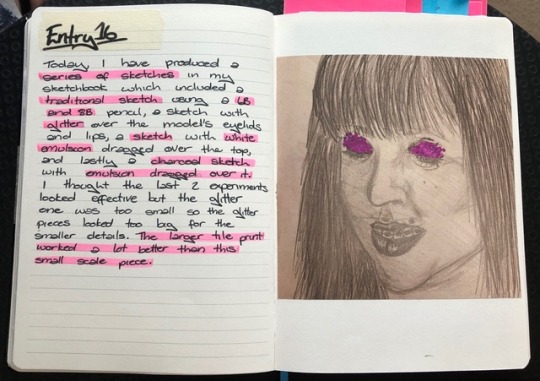 Entry 16
Today, I have produced a
series of sketches in my
sketchbook which included a
traditional sketch using a 6B
and 8B pencil, a sketch with
glitter over the model's eyelids
and lips, a sketch with white
emulsion dragged over the top,
and lastly a charcoal sketch
with emulsion dragged over it.
I thought the last 2 experiments
looked effective but the glitter
one was too small so the glitter
pieces looked too big for the
smaller details. The larger tile print
worked a lot better than this
small scale piece.